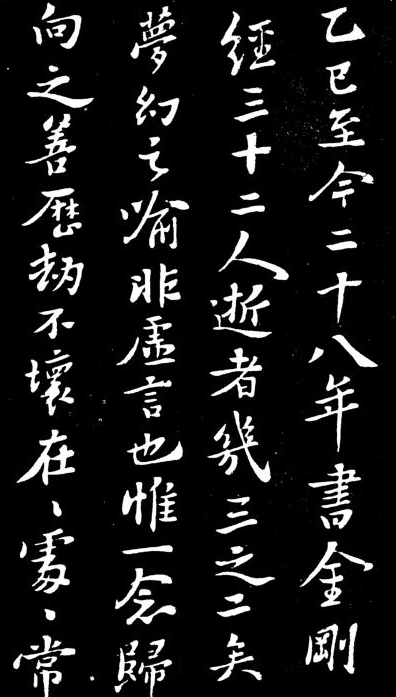 乙巳至今二十八年書金剛
經三十二人逝者幾三之二矣
夢幻之喻非虛言也惟一念歸
向之善歷劫不壞在〻處〻常